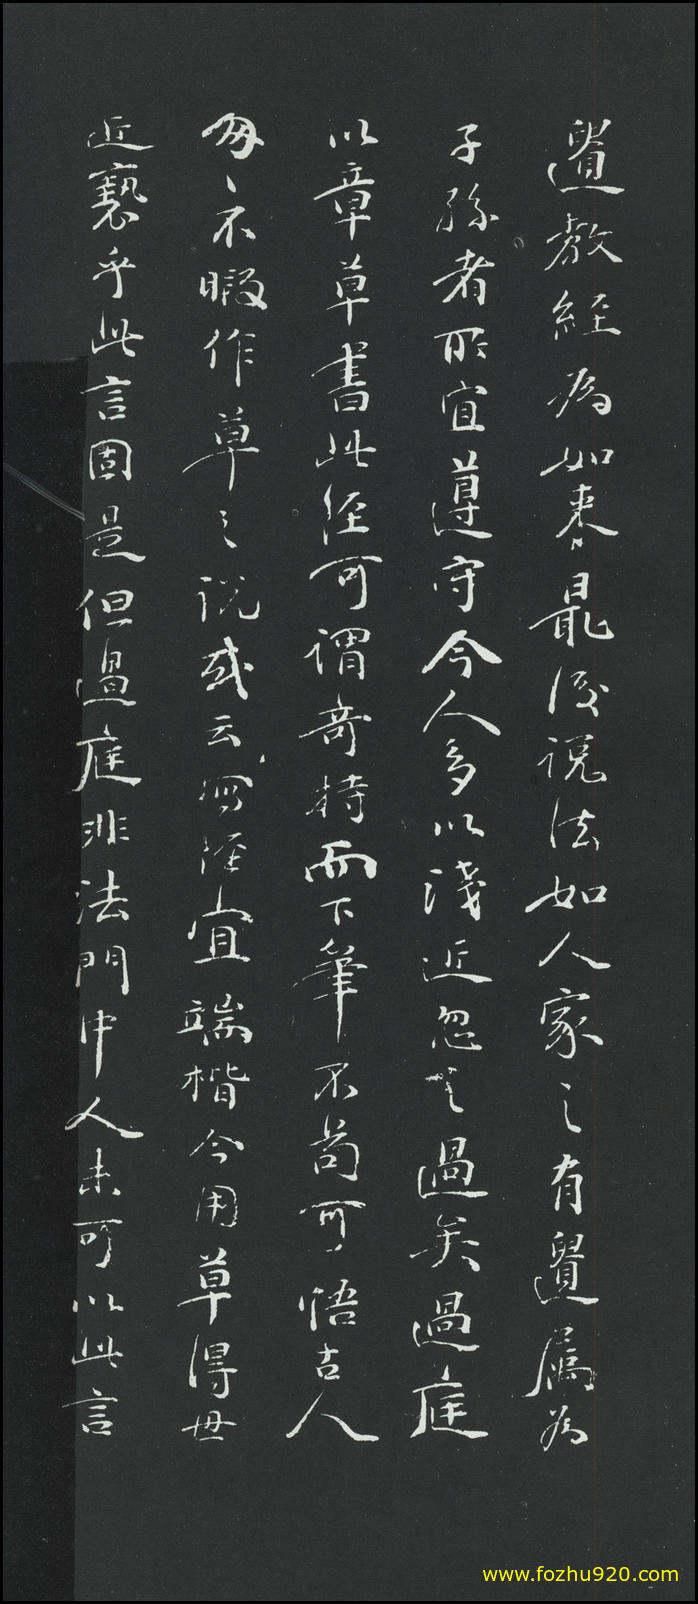 遺教經為如來最後說法如人家之有遺屬為
子孫者所宜遵守今人多以淺近忽之過矣過庭
以章草書此經可謂奇特而下筆不苟可悟古人
匆匆不暇作草之說或云寫經宜端楷今用草得毋
近褻乎此言固是但過庭非法門中人未可以此言
www.fozhu920.com